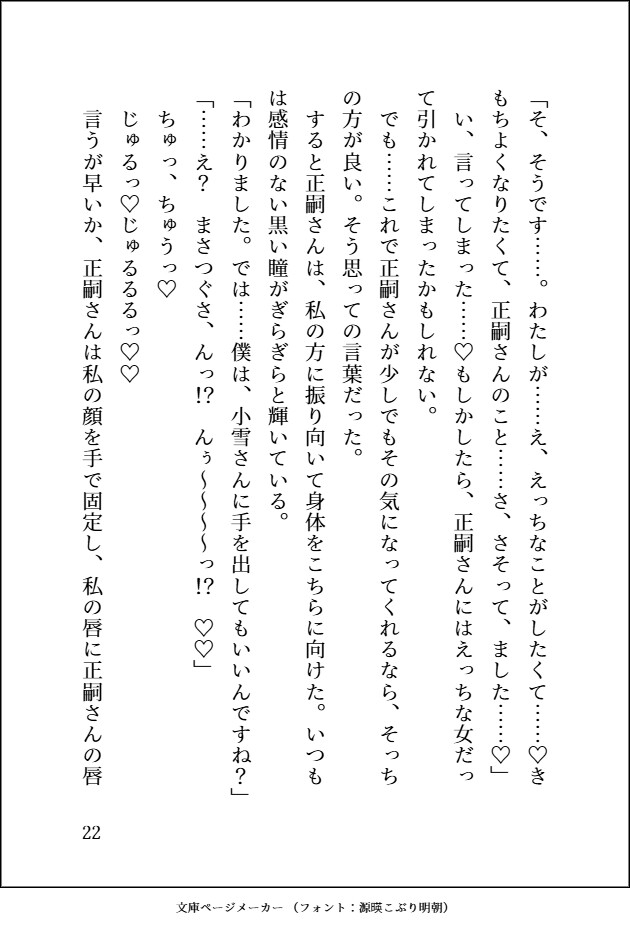 「そ、そうです……。わたしが……え、えっちなことがしたくて……♡き
もちよくなりたくて、正嗣さんのこと……さ、さそって、ました……♡」
い、言ってしまった……♡もしかしたら、正嗣さんにはえっちな女だっ
て引かれてしまったかもしれない。
でも……これで正嗣さんが少しでもその気になってくれるなら、そっち
の方が良い。そう思っての言葉だった。
すると正嗣さんは、私の方に振り向いて身体をこちらに向けた。いつも
は感情のない黒い瞳がぎらぎらと輝いている。
「わかりました。では……僕は、小雪さんに手を出してもいいんですね？」
「……え？　まさつぐさ、んっ!?　んぅ〜〜〜〜っ!?　♡♡」
ちゅっ、ちゅうっ♡
じゅるっ♡じゅるるるっ♡♡
言うが早いか、正嗣さんは私の顔を手で固定し、私の唇に正嗣さんの唇
22
文庫ページメーカー（フォント：源暎こぶり明朝）